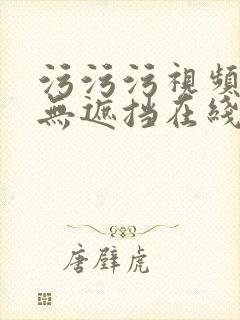 污污污視頻
無遮挡在綫
唐壁虎